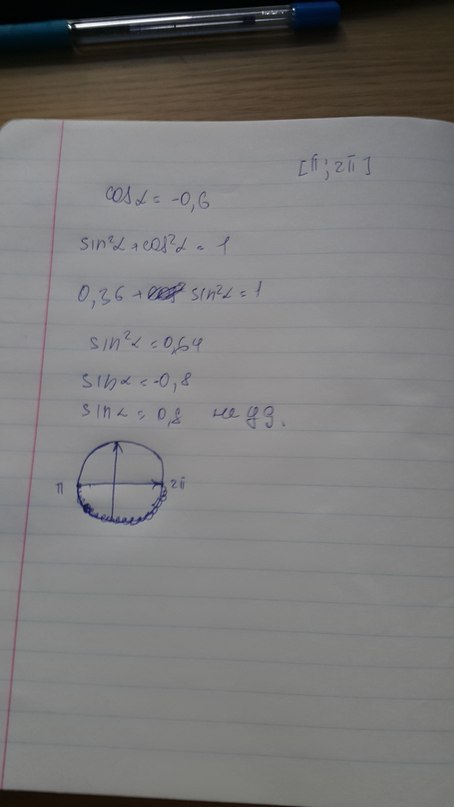 [π; 2π]
cosα = -0,6
sin²α + cos²α = 1
0,36 + sin²α = 1
sin²α = 0,64
sinα = -0,8
sinα = 0,8 не уд.
π 2π